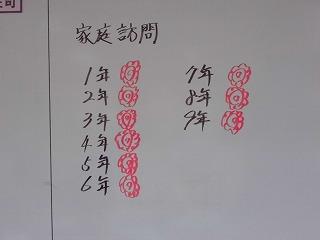 家庭訪問
1年
2年
3年
4年
5年
6年
7年
8年
9年